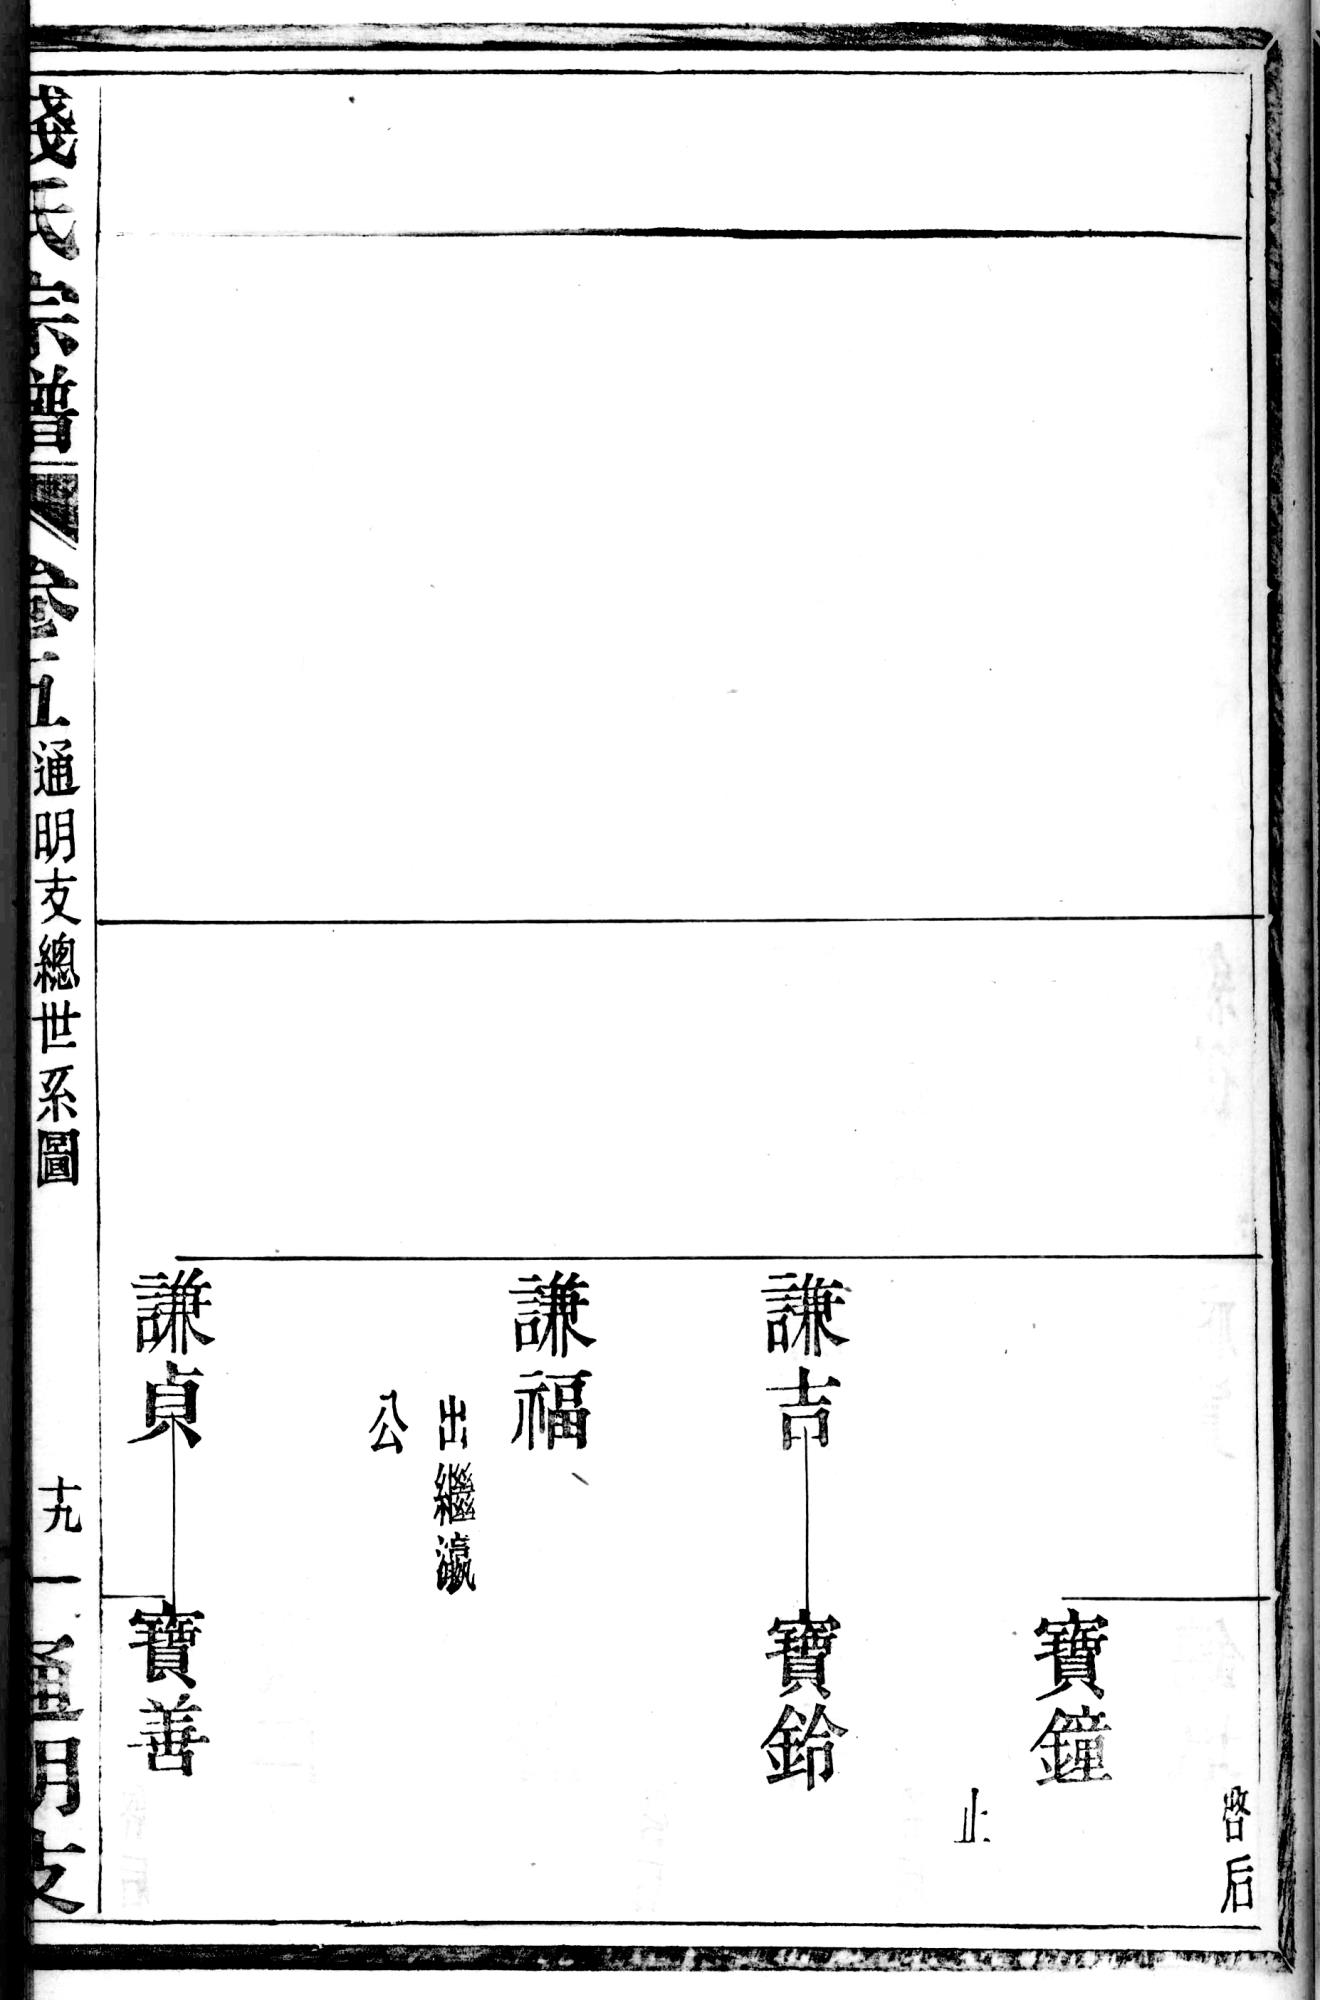 啓后
寶鐘
止
謙吉
寶鈴
謙福
出繼瀛
公
謙貞
寶善
錢氏宗譜
卷五
通明支總世系圖
十九
通明支